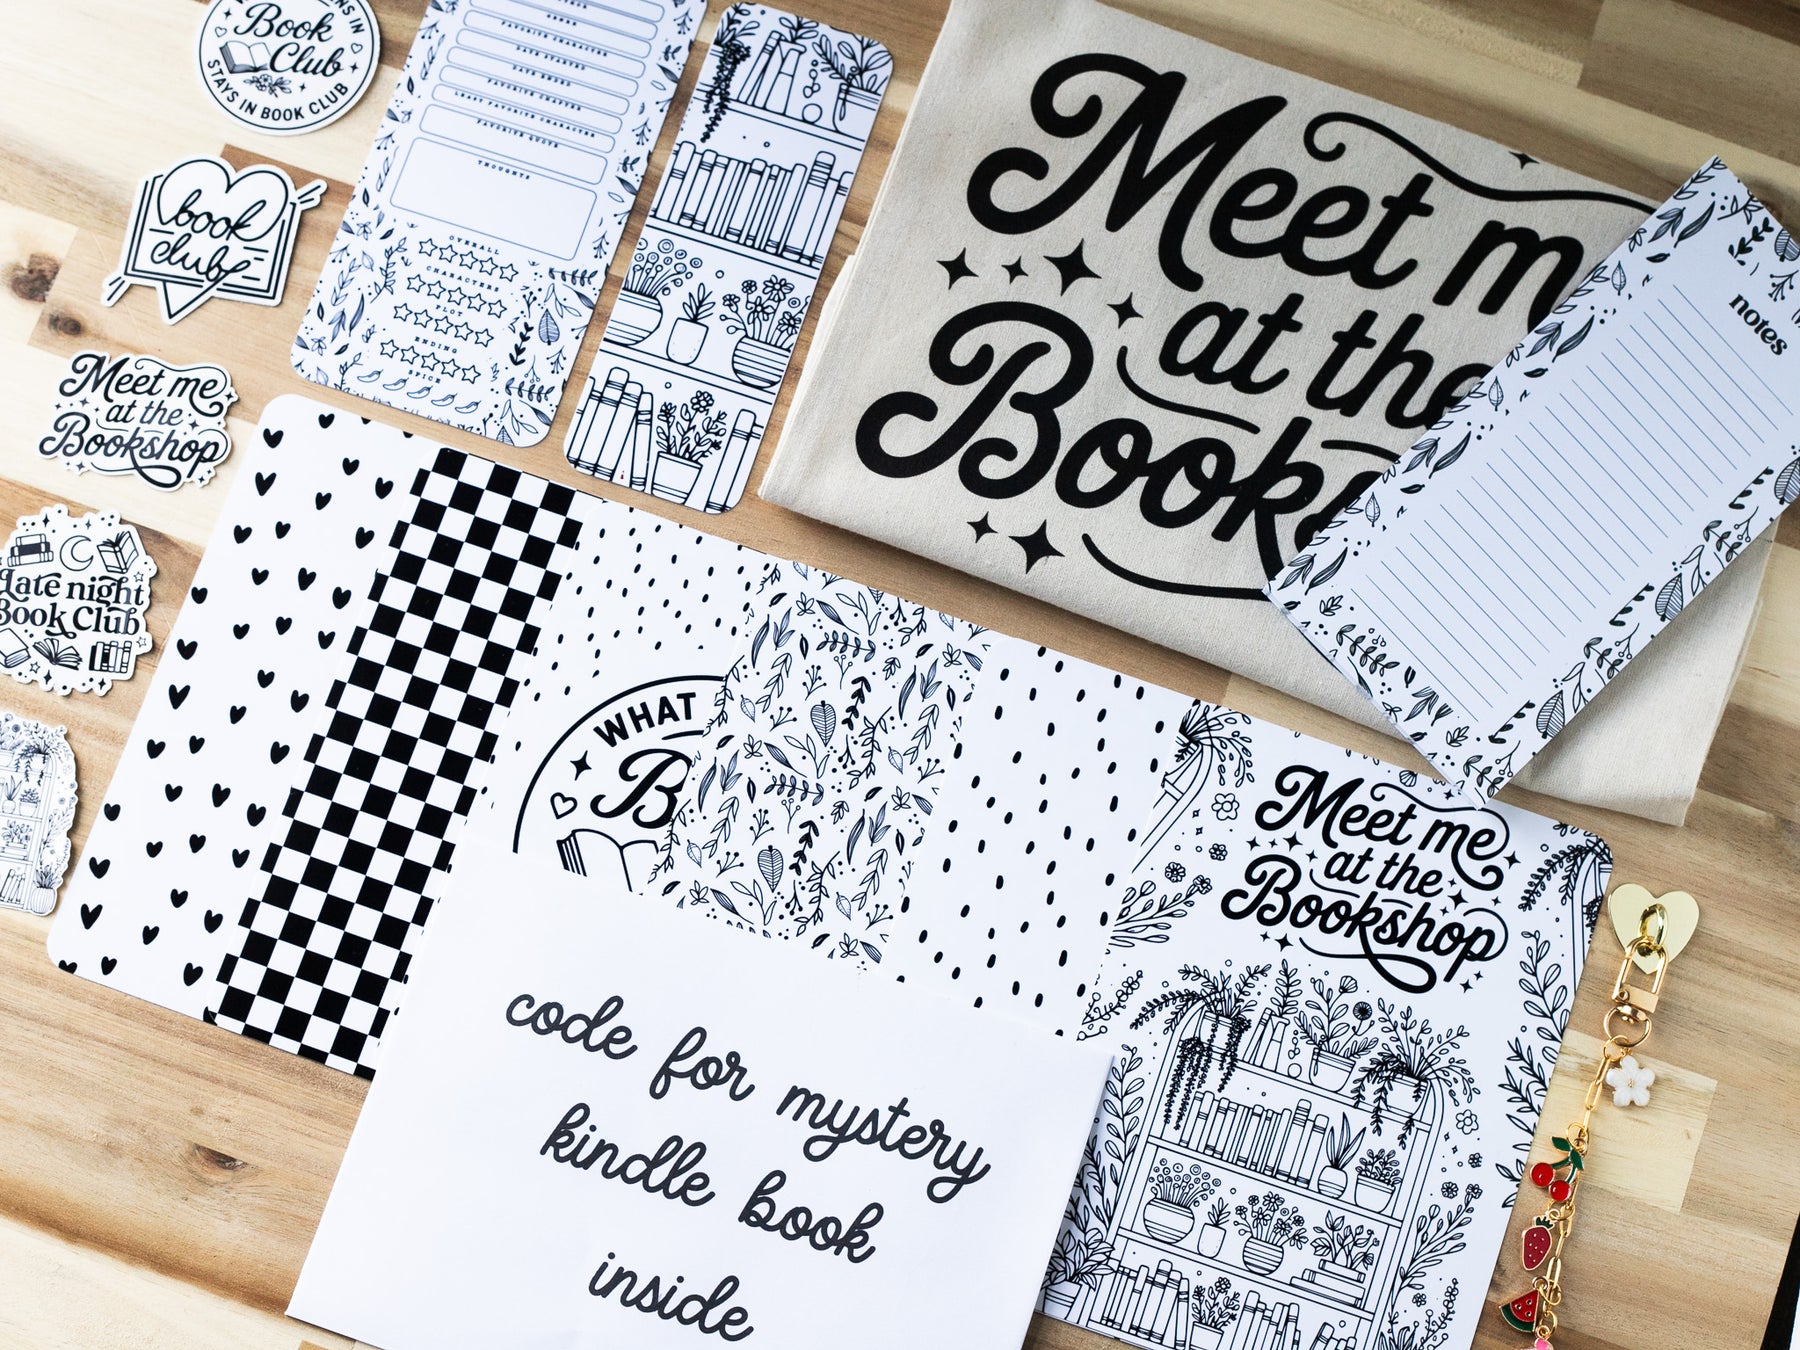 Book
Club
STAYS IN BOOK CLUB
book
club
Meet me
at the
Bookshop
Late night
Book Club
GENRE
FAVORITE CHARACTER
DATE STARTED
DATE ENDED
FAVORITE CHAPTER
LEAST FAVORITE CHARACTER
FAVORITE QUOTE
THOUGHTS
OVERALL
CHARACTERS
PLOT
ENDING
SPICE
Meet m
at the
Book
notes
WHAT
B
Meet me
at the
Bookshop
code for mystery
kindle book
inside